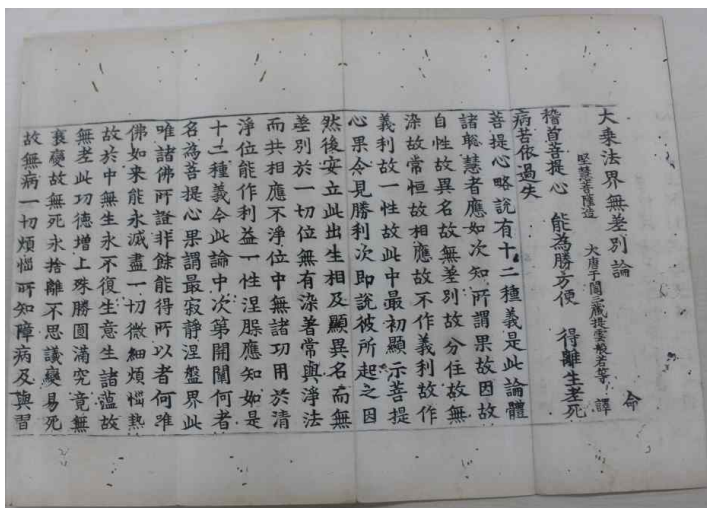 大乘法界無差別論
堅慧菩薩造 大唐于闐三藏提雲般若等譯
命
稽首菩提心 能為勝方便 得離生老死
病苦依過失
菩提心略說有十二種義是此論體
諸聰慧者應如次知所謂果故因故
自性故異名故無差別故分住故無
染故常恒故相應故不作義利故作
義利故一性故此中最初顯示菩提
心果令見勝利次即說彼所起之因
然後安立此出生相及顯異名而無
差別於一切位無有染著常與淨法
而共相應不淨位中無諸功用於清
淨位能作利益一性涅槃應知如是
十二種義今此論中次第開闡何者
名為菩提心果謂最寂靜涅槃界此
唯諸佛所證非餘能得所以者何唯
佛如來能永滅盡一切微細煩惱熱
故於中無生永不復生意生諸蘊故
無老此功德增上殊勝圓滿究竟無
衰變故無死永捨離不思議變易死
故無病一切煩惱所知障病及與習